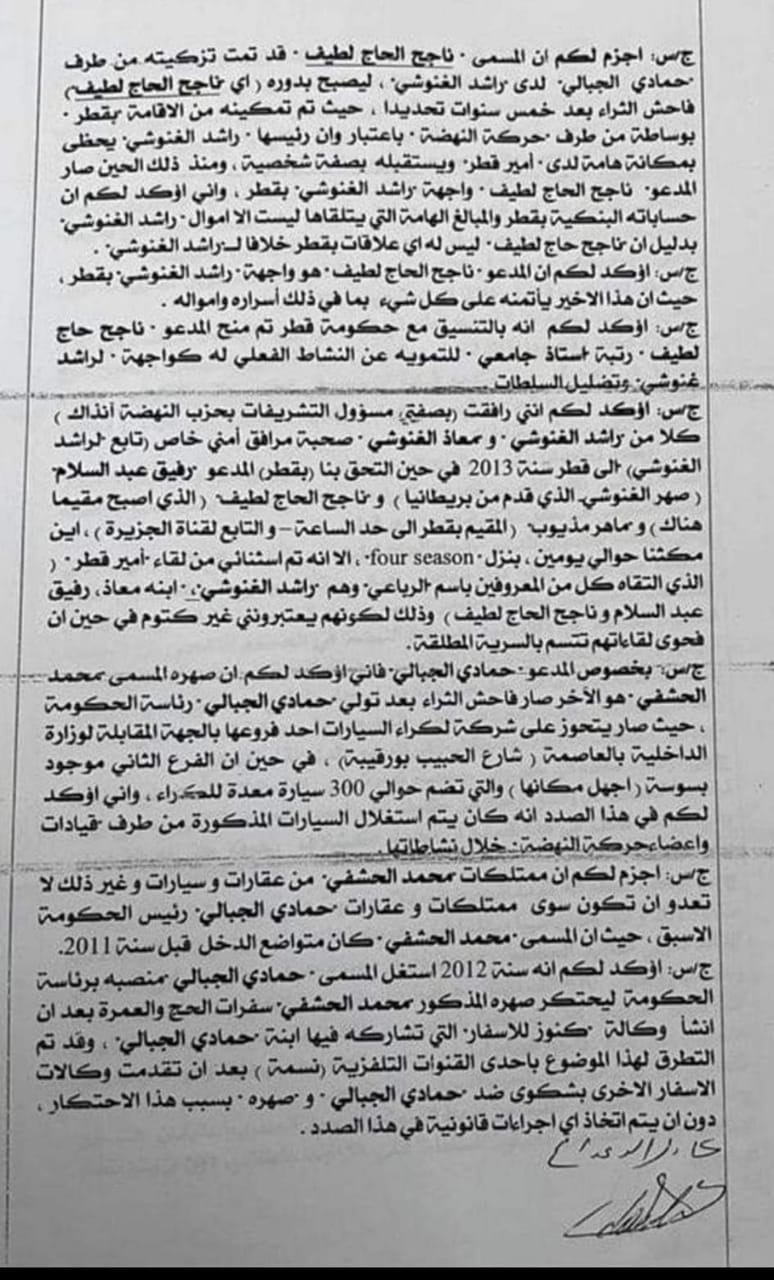 ج/س: اجزم لكم ان المسمى "ناجح الحاج لطيف" قد تمت تزكيته من طرف
"حمادي الجبالي" لدى "راشد الغنوشي" ، ليصبح بدوره ( اي "ناجح الحاج لطيف")
فاحش الثراء بعد خمس سنوات تحديدا ، حيث تم تمكينه من الاقامة بقطر "
بوساطة من طرف "حركة النهضة" باعتبار وان رئيسها "راشد الغنوشي" يحظى
بمكانة هامة لدى "أمير قطر" ويستقبله بصفة شخصية ، ومنذ ذلك الحين صار
المدعو "ناجح الحاج لطيف" واجهة "راشد الغنوشي" بقطر ، واني اؤكد لكم ان
حساباته البنكية بقطر والمبالغ الهامة التي يتلقاها ليست الا اموال "راشد الغنوشي"
بدليل ان "ناجح حاج لطيف" ليس له اي علاقات بقطر خلافا لـ"راشد الغنوشي" .
ج/س: اؤكد لكم ان المدعو "ناجح الحاج لطيف" هو واجهة "راشد الغنوشي" بقطر ،
حيث ان هذا الاخير يأتمنه على كل شيء بما في ذلك أسراره وامواله .
ج/س: اؤكد لكم انه بالتنسيق مع حكومة قطر تم منح المدعو "ناجح حاج
لطيف" رتبة "استاذ جامعي" للتمويه عن النشاط الفعلي له كواجهة "لراشد
غنوشي" وتضليل السلطات .
ج/س: اؤكد لكم انني رافقت (بصفتي مسؤول التشريفات بحزب النهضة آنذاك )
كلا من "راشد الغنوشي" و "معاذ الغنوشي" صحبة مرافق أمني خاص (تابع "لراشد
الغنوشي) الى قطر سنة 2013 في حين التحق بنا (بقطر) المدعو "رفيق عبد السلام"
( صهر الغنوشي الذي قدم من بريطانيا ) و "ناجح الحاج لطيف" ( الذي اصبح مقيما
هناك) و "ماهر مذيوب" (المقيم بقطر الى حد الساعة – و التابع لقناة الجزيرة ) ، اين
مكثنا حوالي يومين ، بنزل "four season" ، الا انه تم استثنائي من لقاء "أمير قطر" (
الذي التقاه كل من المعروفين باسم "الرباعي" وهم "راشد الغنوشي" ، ابنه معاذ، رفيق
عبد السلام و ناجح الحاج لطيف ) وذلك لكونهم يعتبرونني غير كتوم في حين ان
فحوى لقاءاتهم تتسم بالسرية المطلقة.
ج/س: بخصوص المدعو "حمادي الجبالي" فاني اؤكد لكم ان صهره المسمى "محمد
الحشفي" هو الآخر صار فاحش الثراء بعد تولي "حمادي الجبالي" رئاسة الحكومة
، حيث صار يتحوز على شركة لكراء السيارات احد فروعها بالجهة المقابلة لوزارة
الداخلية بالعاصمة ( شارع الحبيب بورقيبة) ، في حين ان الفرع الثاني موجود
بسوسة ( اجهل مكانها ) والتي تضم حوالي 300 سيارة معدة للكراء ، واني اؤكد
لكم في هذا الصدد انه كان يتم استغلال السيارات المذكورة من طرف قيادات
واعضاء حركة النهضة" خلال نشاطاتها.
ج/س: اجزم لكم ان ممتلكات "محمد الحشفي" من عقارات و سيارات و غير ذلك لا
تعدو ان تكون سوى ممتلكات و عقارات "حمادي الجبالي" رئيس الحكومة
الاسبق ، حيث ان المسمى "محمد الحشفي" كان متواضع الدخل قبل سنة 2011.
ج/س: اؤكد لكم انه سنة 2012 استغل المسمى "حمادي الجبالي" منصبه برئاسة
الحكومة ليحتكر صهره المذكور "محمد الحشفي" سفرات الحج والعمرة بعد ان
انشأ وكالة "كنوز للأسفار" التي تشاركه فيها ابنة "حمادي الجبالي" ، وقد تم
التطرق لهذا الموضوع باحدى القنوات التلفزية (نسمة ) بعد ان تقدمت وكالات
الاسفار الاخرى بشكوى ضد "حمادي الجبالي" و "صهره" بسبب هذا الاحتكار ،
دون ان يتم اتخاذ اي اجراءات قانونية في هذا الصدد .